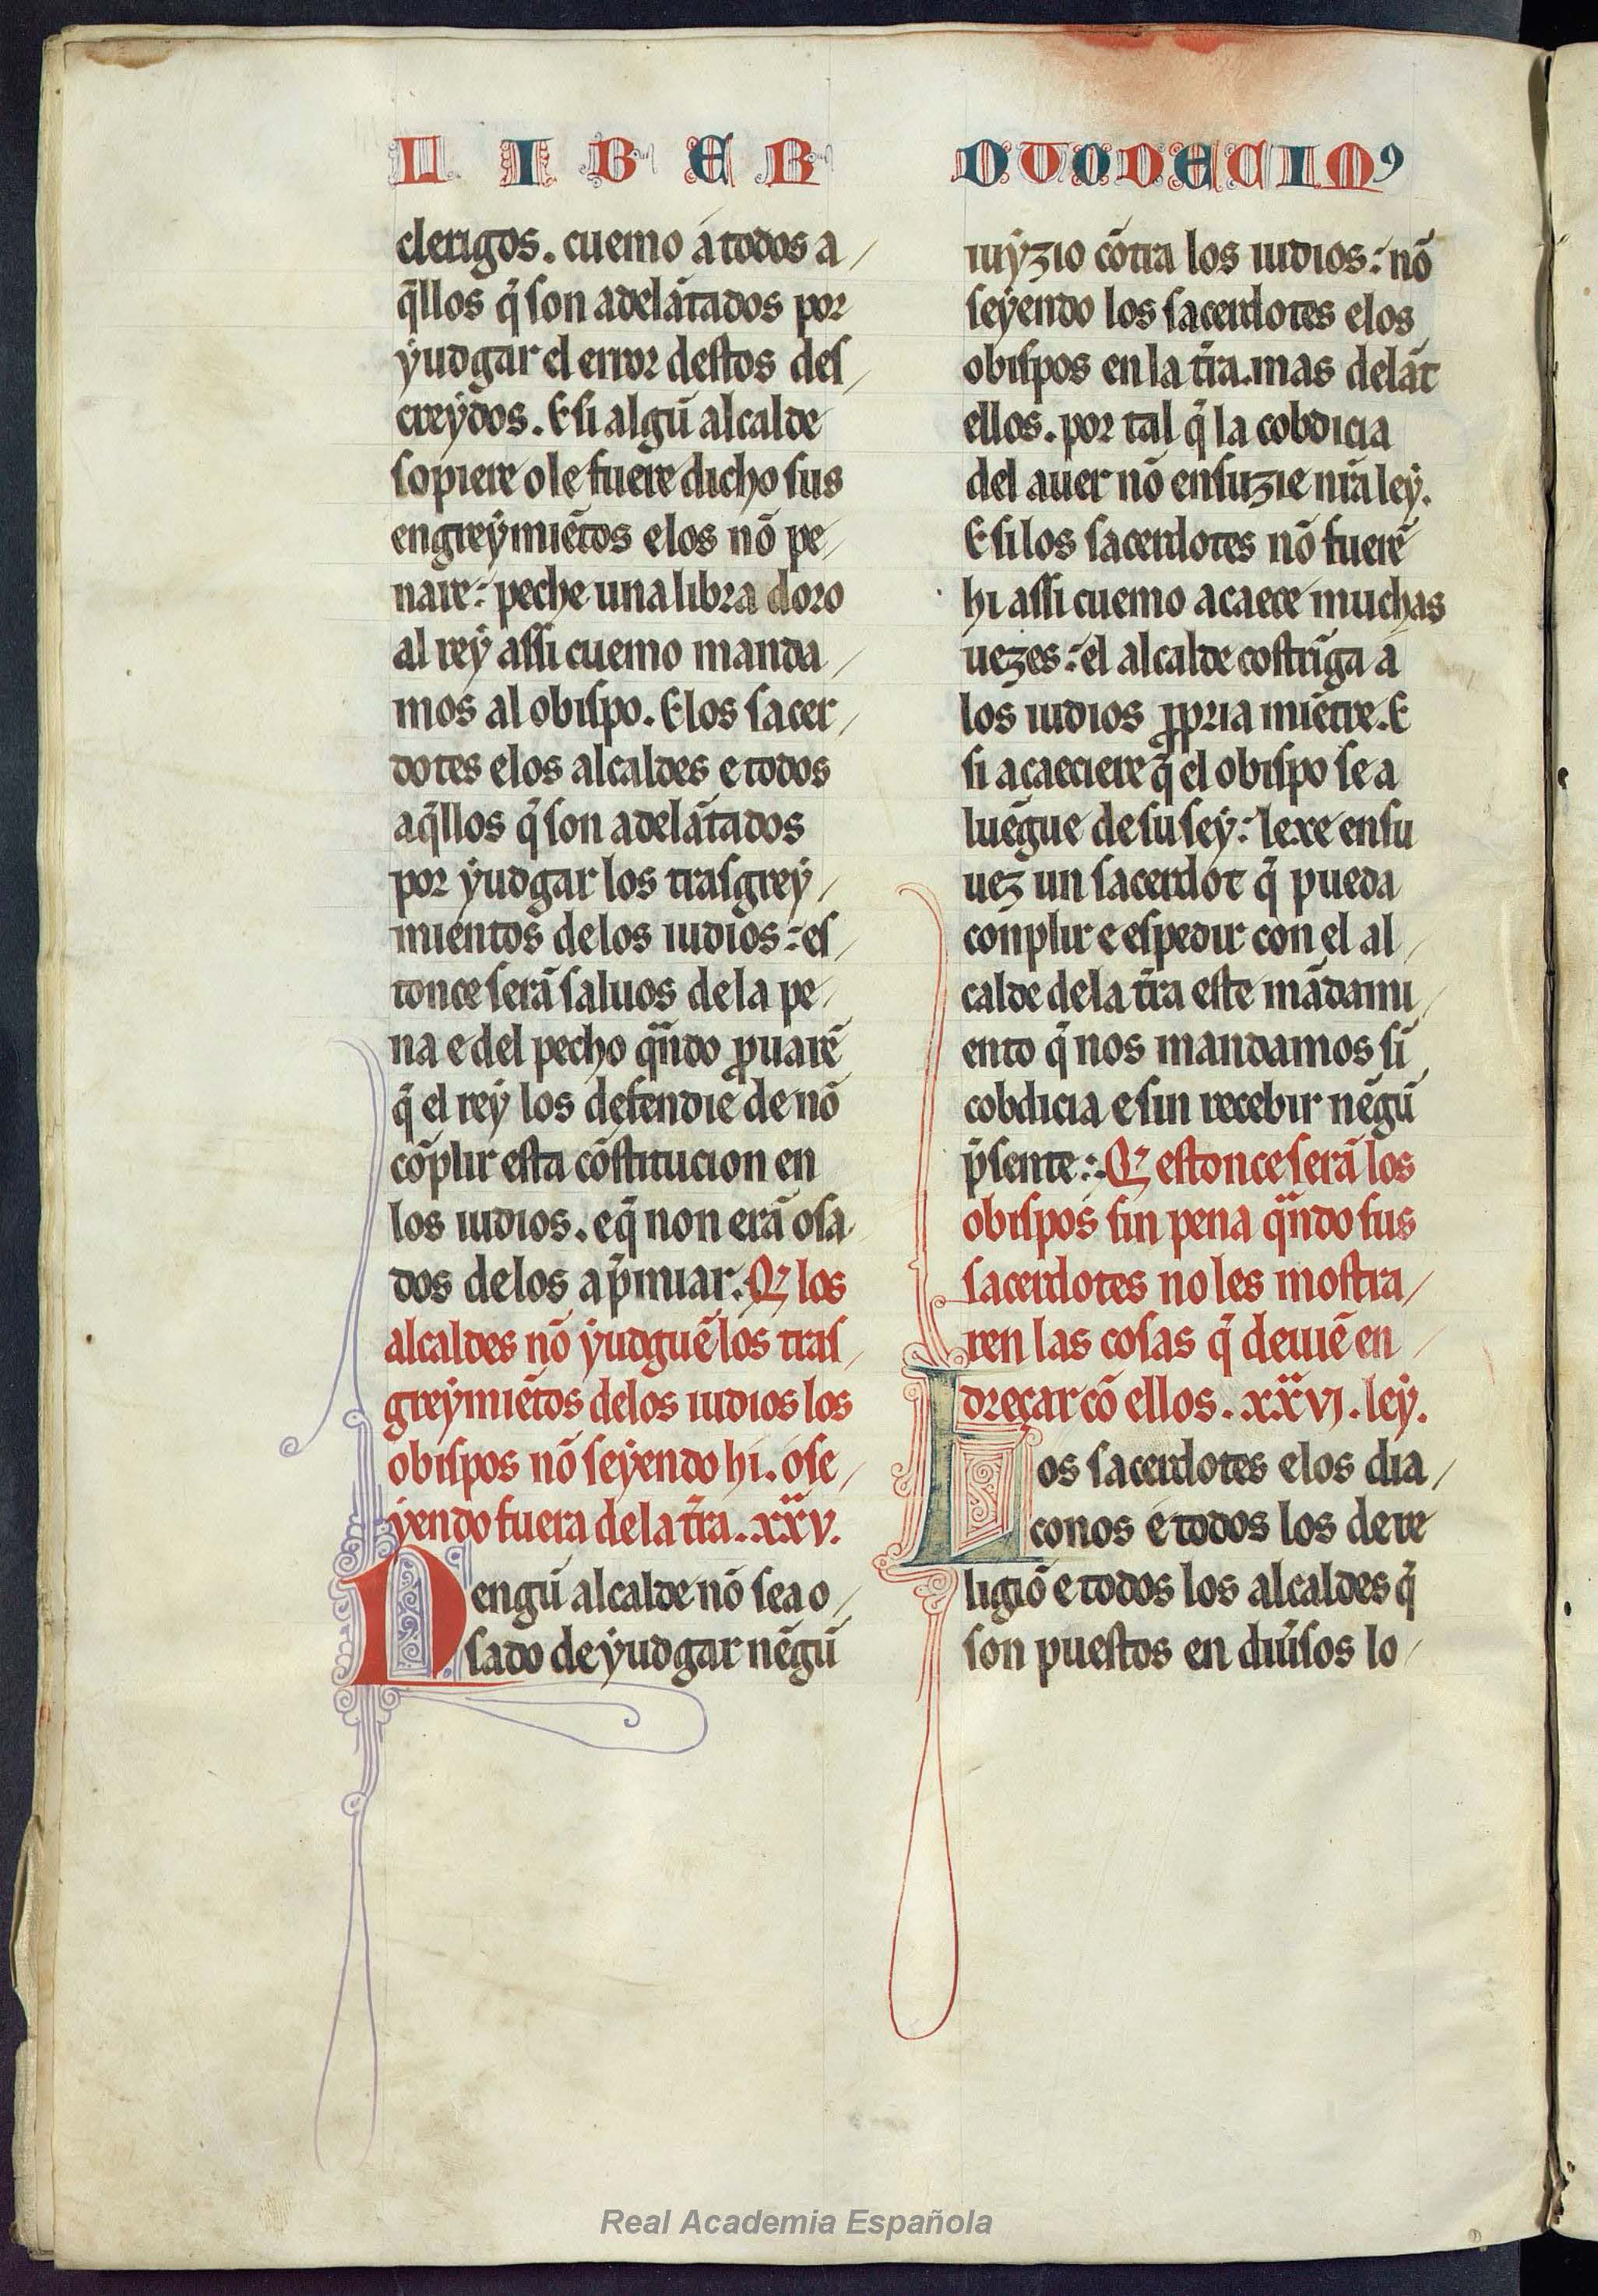 LIBER DUODECIM9
clerigos. cuemo a todos a/
q̃llos q̃ son adelãtados por
ẏudgar el error destos des/
creẏdos. E si algũ alcalde
sopiere o le fuere dicho sus
engreẏmiẽtos e los nõ pe/
nare: peche una libra doro
al reẏ assi cuemo manda/
mos al obispo. E los sacer/
dotes e los alcaldes e todos
aq̃llos q̃ son adelãtados
por ẏudgar los trasgreẏ/
mientos de los iudios: es/
tonce serã saluos de la pe/
na e del pecho qñdo ꝓuarẽ
q̃ el reẏ los defendie de nõ
cõplir esta cõstitucion en
los iudios. e q̃ non erã osa/
dos de los ap̃miar. Q̃ los
alcaldes nõ ẏudguẽ los tras/
greẏmiẽtos de los iudios los
obispos nõ seẏendo hi. o se/
ẏendo fuera de la tr̃a. xxv.
Nengũ alcalde nõ sea o/
sado de ẏudgar nẽgũ
iuẏzio cõtra los iudios: nõ
seẏendo los sacerdotes e los
obispos en la tr̃a. mas delãt
ellos. por tal q̃ la cobdicia
del auer nõ ensuzie nr̃a leẏ.
E si los sacerdotes nõ fuerẽ
hi assi cuemo acaece muchas
uezes: el alcalde costrĩga a
los iudios ꝓpria miẽtre. E
si acaeciere q̃ el obispo sea
luẽgue de su seẏ: lexe en su
uez un sacerdot q̃ pueda
conplir e espedir con el al/
calde de la tr̃a este mãdami/
ento q̃ nos mandamos sĩ
cobdicia e sin recebir nẽgũ
p̃sente: Q̃ estonce serã los
obispos sin pena qñdo sus
sacerdotes no les mostra/
ren las cosas q̃ deuiẽ en/
dreçar cõ ellos. xxvj. leẏ.
Los sacerdotes e los dia/
conos e todos los de re
ligiõ e todos los alcaldes q̃
son puestos en diũsos lo/
Real Academia Española